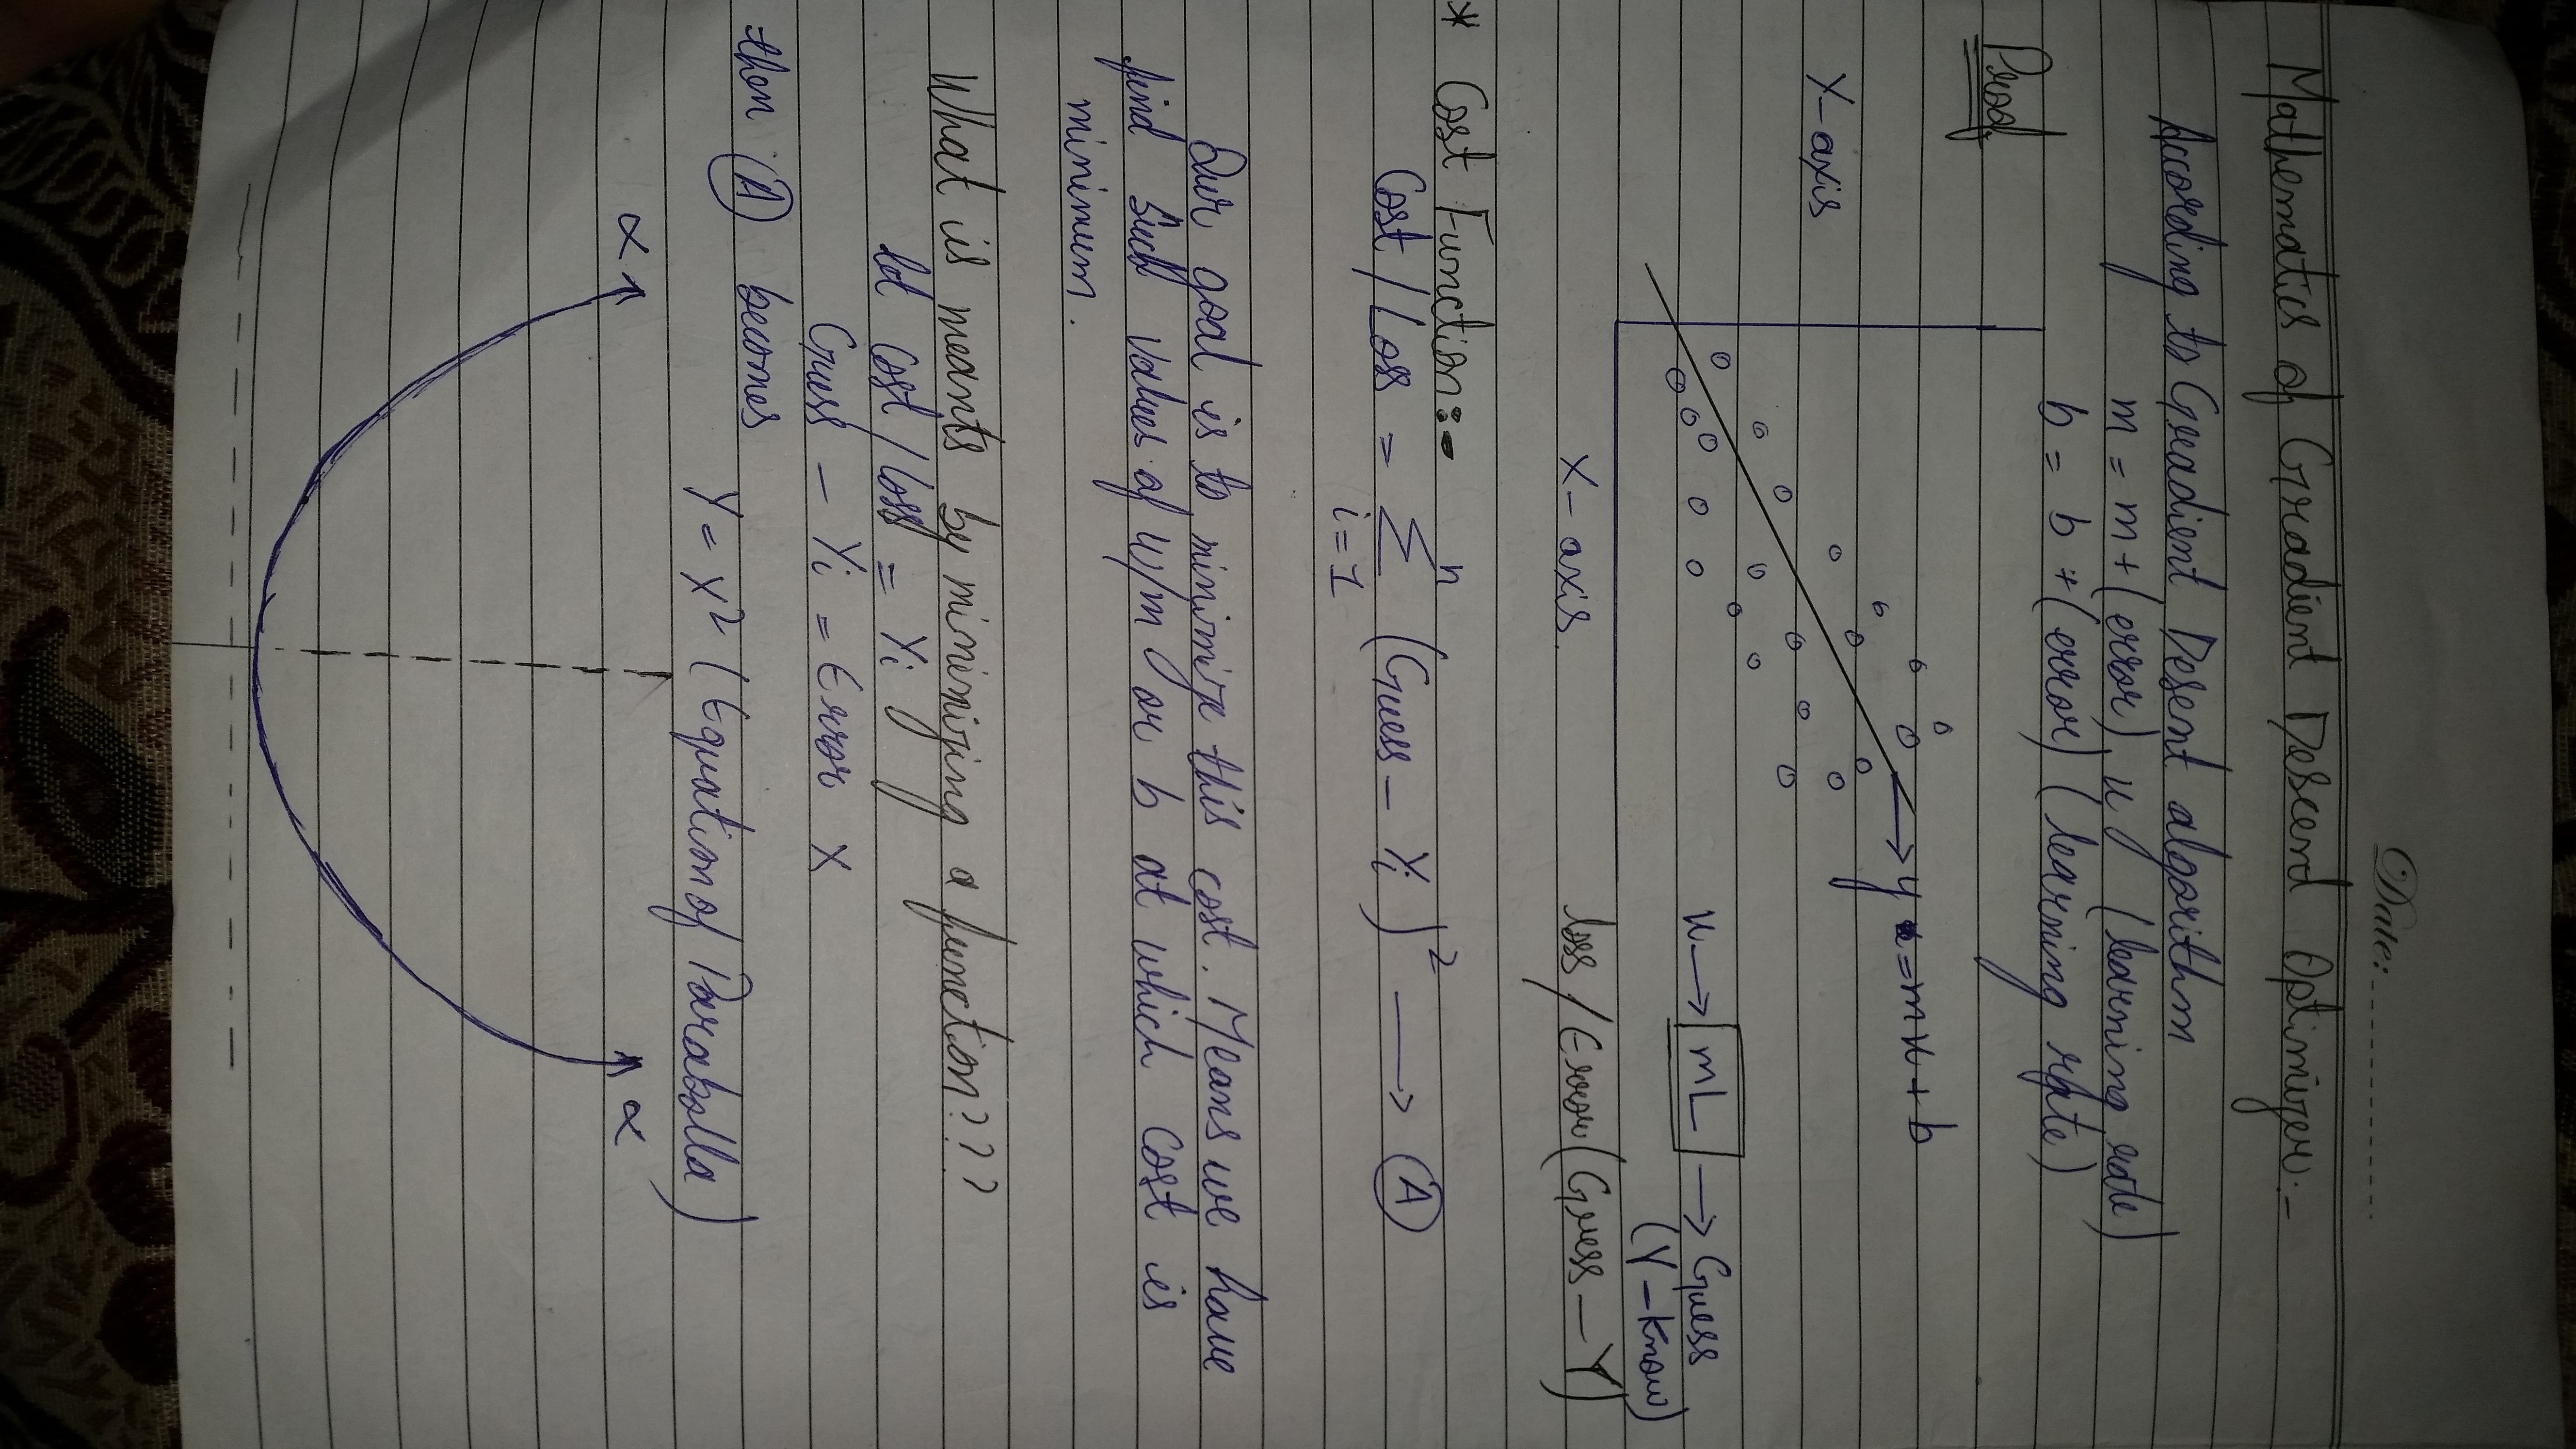 Date:
Mathematics of Gradient Descent Optimizer:-
According to Greadient Desent algorithm
m = m + (error) x y (learning rate)
b = b + (error) (learning rate)
Proof
Y-axis
y = mx + b
x → mL → Guess
(Y - Know)
X-axis.
loss / Error (Guess - Y)
* Cost Function:-
Cost / Loss = Σ (Guess - Yi)² → A
n
i=1
Our goal is to minimize this cost. Means we have
find such values of y/m or b at which cost is
minimum.
What is meants by minimizing a function???
let cost / loss = Yi y
Guess - Yi = Error X
then A becomes
Y = X² (Equation of Parabolla)
∝ ∝